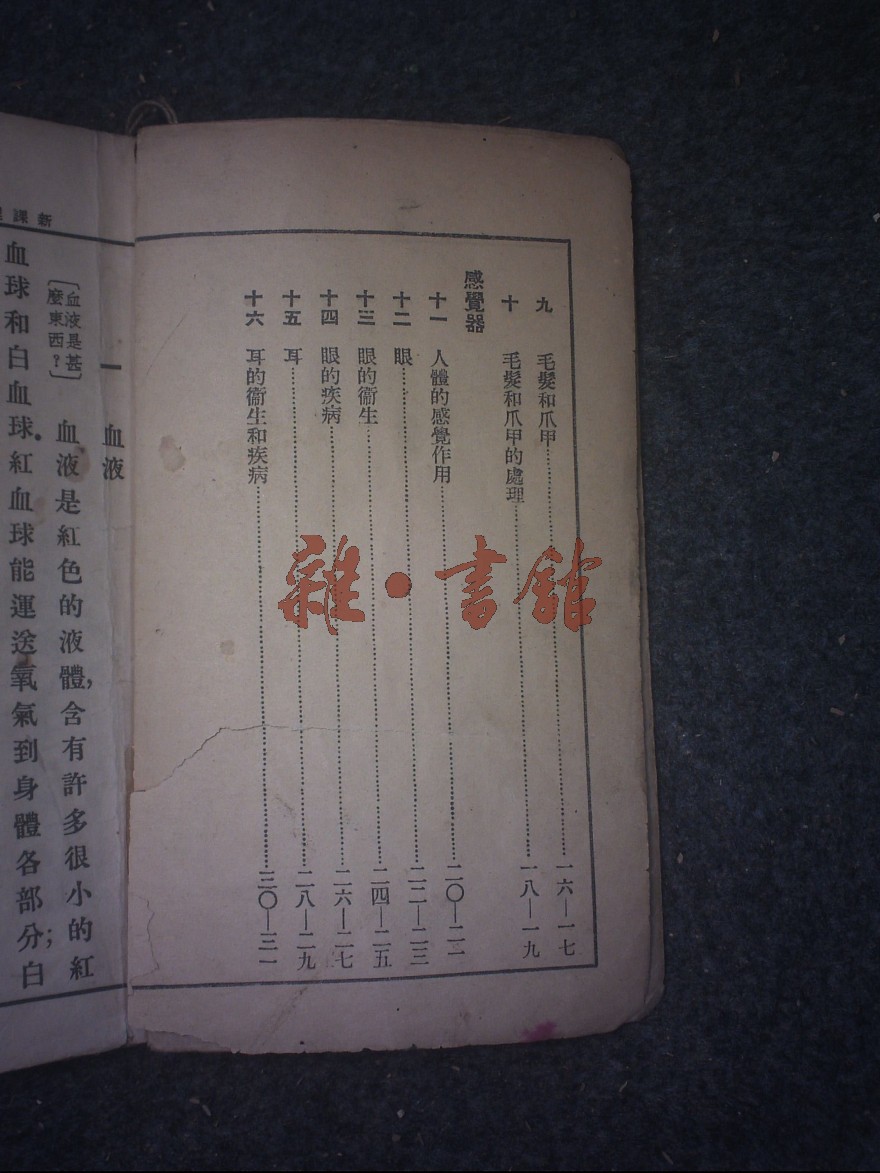 九 毛髮和爪甲……一六—一七
十 毛髮和爪甲的處理……一八—一九
感覺器
十一 人體的感覺作用……二〇—二一
十二 眼……二二—二三
十三 眼的衞生……二四—二五
十四 眼的疾病……二六—二七
十五 耳……二八—二九
十六 耳的衞生和疾病……三〇—三一
新課
一 血液
〔血液是甚麼東西？〕
血液是紅色的液體,含有許多很小的紅
血球和白血球.紅血球能運送氧氣到身體各部分;白
雜·書館